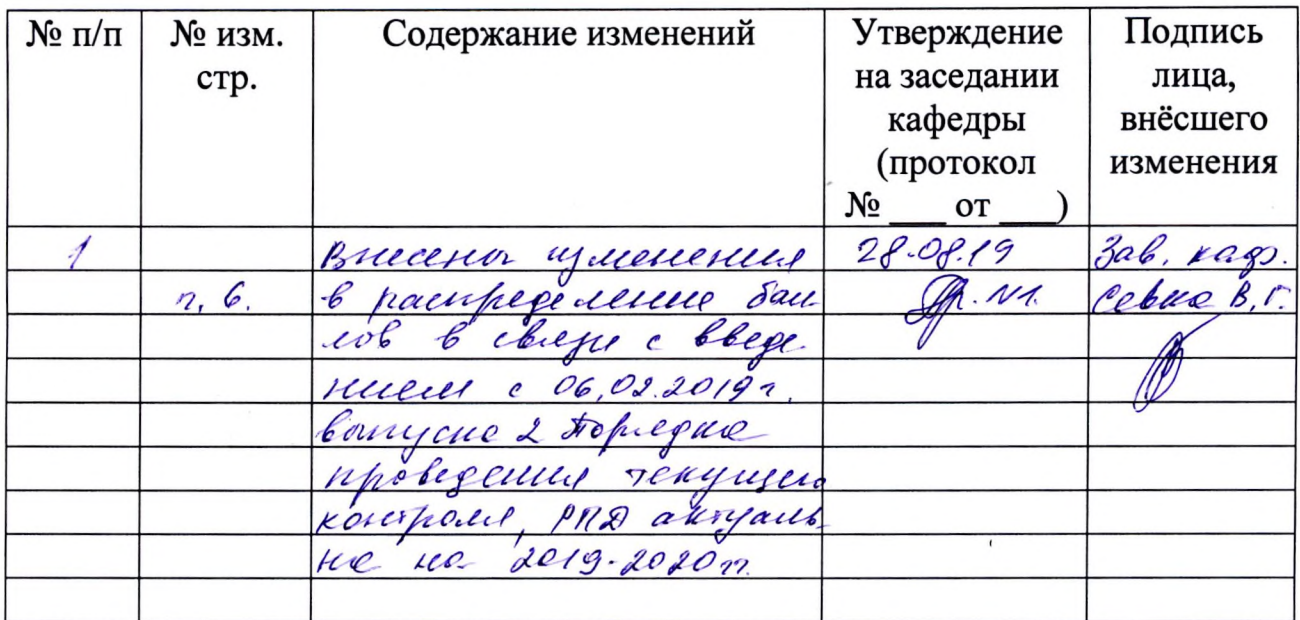 № п/п № изм. Содержание изменений Утверждение Подпись
стр. на заседании лица,
кафедры внёсшего
(протокол изменения
№ ___ от ___)
1 Внесены изменения 28.08.19 Зав. каф.
п. 6. в распределение бал- Пр. №1. Севка В.Г.
лов в связи с введе-
нием с 06.02.2019г.
выпуска 2 Порядка
проведения текущего
контроля, РПД актуаль-
на на 2019-2020гг.